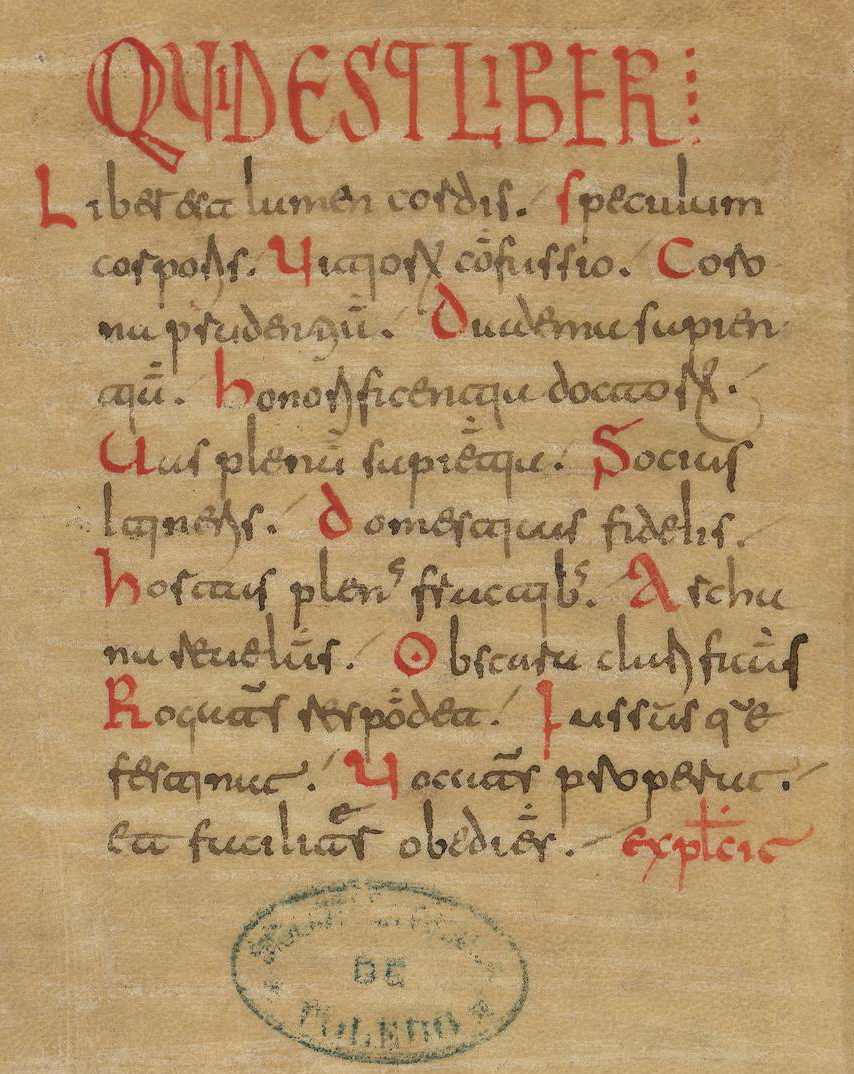 QUID EST LIBER
Liber est lumen cordis. Speculum
corporis. Uitiorꝝ cōfussio. Coro
na prudentiū. Diadema sapien
tiū. honorificentia doctorꝝ.
Uas plenū sapiētia. Socius
Itineris. domesticus fidelis.
hortus plen's fructibs. Archa
na reuelās. Obscura clarificās
Rogatūs respōdet. Iussūs q'e
festinat. Uocatūs properat.
et faciliter obediēs. explcit
DE
TOLEDO